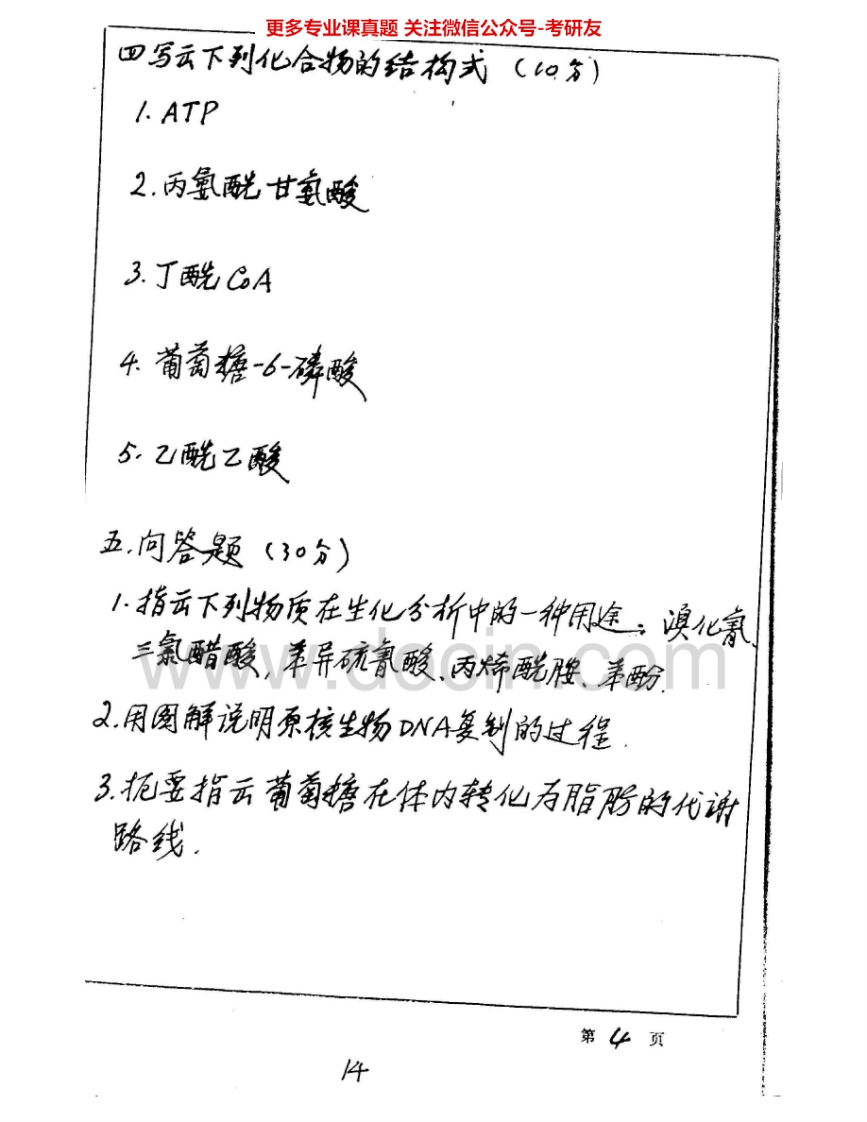 更多专业课真题 关注微信公众号-考研友
四写云下列化合物的结构式 (10分)
1. ATP
2. 丙氨酰甘氨酸
3. 丁酰CoA
4. 葡萄糖-6-磷酸
5. 乙酰乙酸
五.问答题 (30分)
1. 指云下列物质在生化分析中的一种用途: 溴化氰、
三氯醋酸, 苯异硫氰酸、丙烯酰胺、苯酚.
www.docin.com
2. 用图解说明原核生物DNA复制的过程.
3. 扼要指云葡萄糖在体内转化为脂肪的代谢
路线.
第 4 页
14